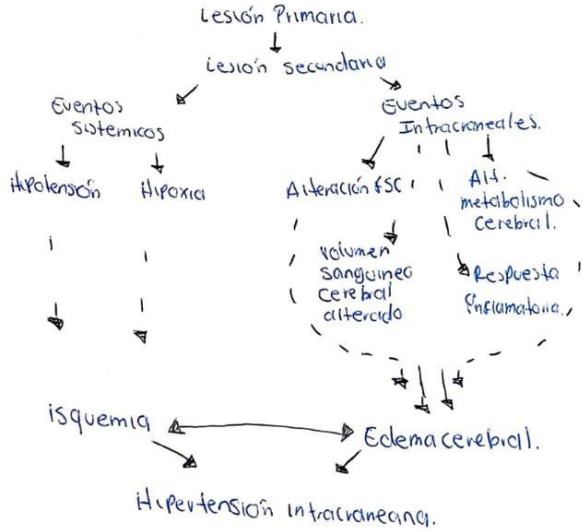 Lesión Primaria.
Lesión secundaria
Eventos
sistemicos
Eventos
Intracraneales.
Hipotensión
Hipoxia
Alteración FSC
Alt.
metabolismo
cerebral.
volumen
sanguineo
cerebral
alterado
Respuesta
inflamatoria.
isquemia
Edema cerebral.
Hipertensión intracraneana.